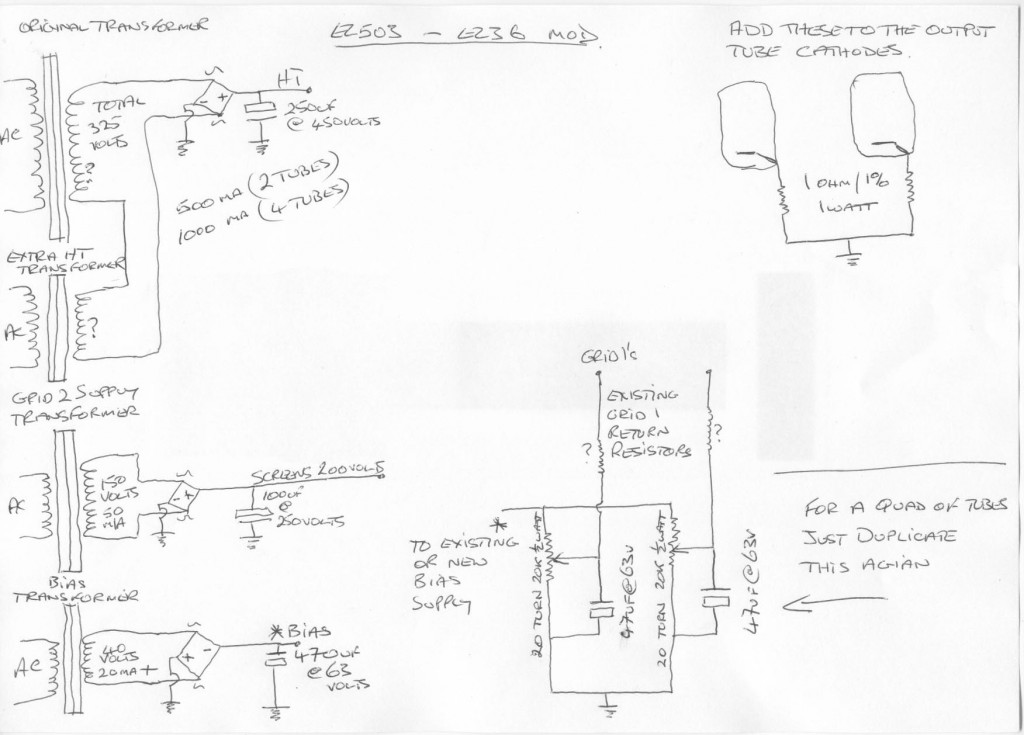 ORIGINAL TRANSFORMER
EL503 - EL36 MOD.
ADD THESE TO THE OUTPUT
TUBE CATHODES.
AC
TOTAL
325
VOLTS
?
~
- +
~
HT
250UF
@ 450VOLTS
500 MA (2 TUBES)
1000 MA (4 TUBES)
1 OHM/1%
1 WATT
EXTRA HT
TRANSFORMER
AC
?
GRID 2 SUPPLY
TRANSFORMER
AC
150
VOLTS
50
M/A
~
- +
~
SCREENS 200VOLTS
100UF
@
250VOLTS
BIAS
TRANSFORMER
AC
40
VOLTS
20MA+
~
+ -
~
* BIAS
470UF
@63
VOLTS
GRID 1's
EXISTING
GRID 1
RETURN
RESISTORS
?
?
*
TO EXISTING
OR NEW
BIAS
SUPPLY
20 TURN 20K ½WATT
47UF@63V
20 TURN 20K ½WATT
47UF@63V
FOR A QUAD OF TUBES
JUST DUPLICATE
THIS AGIAN